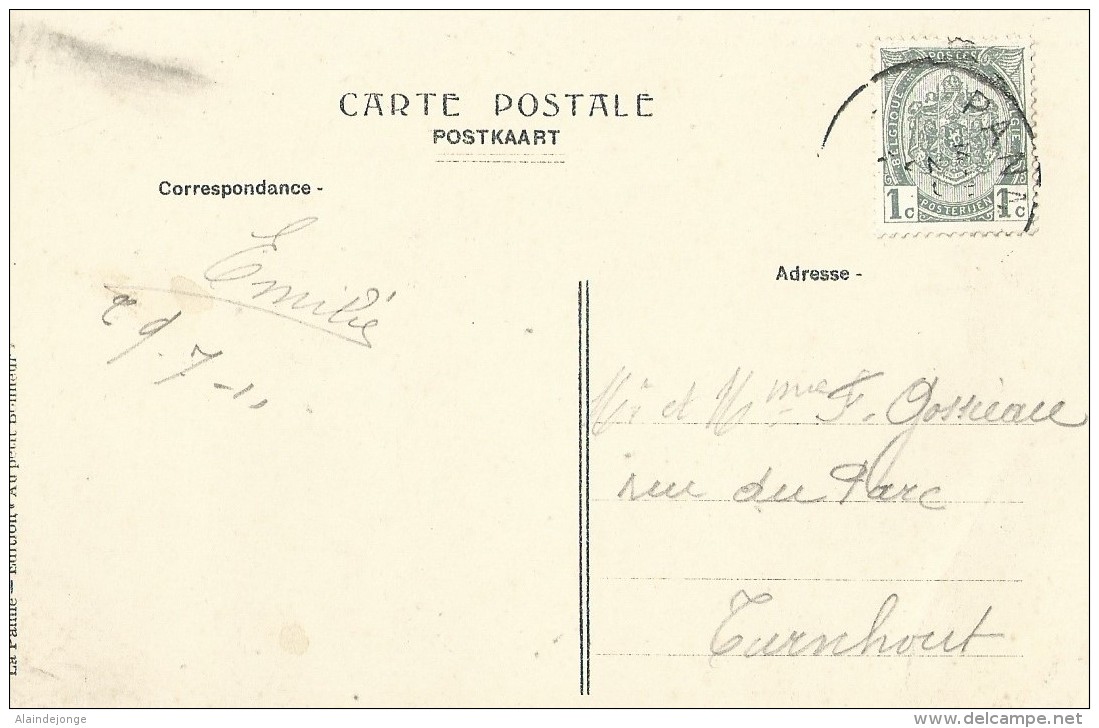 CARTE POSTALE
POSTKAART
Correspondance -
Adresse -
BELGIQUE
POSTES
BELGIE
POSTERIJEN
1c 1c
PANN
Emilie
29.7-11
Mr et Mme F. Gossieau
rue du Parc
Turnhout
La Panne — Edition « Au petit Bonheur »
Alaindejonge
www.delcampe.net